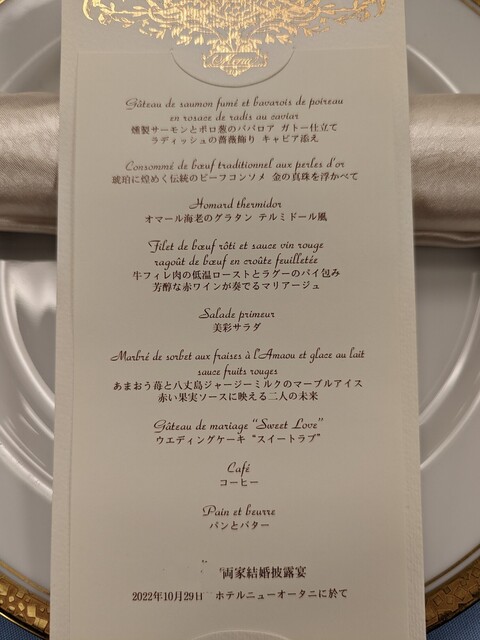 Menu
Gâteau de saumon fumé et bavarois de poireau
en rosace de radis au caviar
燻製サーモンとポロ葱のババロア ガトー仕立て
ラディッシュの薔薇飾り キャビア添え
Consommé de bœuf traditionnel aux perles d'or
琥珀に煌めく伝統のビーフコンソメ 金の真珠を浮かべて
Homard thermidor
オマール海老のグラタン テルミドール風
Filet de bœuf rôti et sauce vin rouge
ragoût de bœuf en croûte feuilletée
牛フィレ肉の低温ローストとラグーのパイ包み
芳醇な赤ワインが奏でるマリアージュ
Salade primeur
美彩サラダ
Marbré de sorbet aux fraises à l'Amaou et glace au lait
sauce fruits rouges
あまおう苺と八丈島ジャージーミルクのマーブルアイス
赤い果実ソースに映える二人の未来
Gâteau de mariage “Sweet Love”
ウエディングケーキ “スイートラブ”
Café
コーヒー
Pain et beurre
パンとバター
両家結婚披露宴
2022年10月29日 ホテルニューオータニに於て